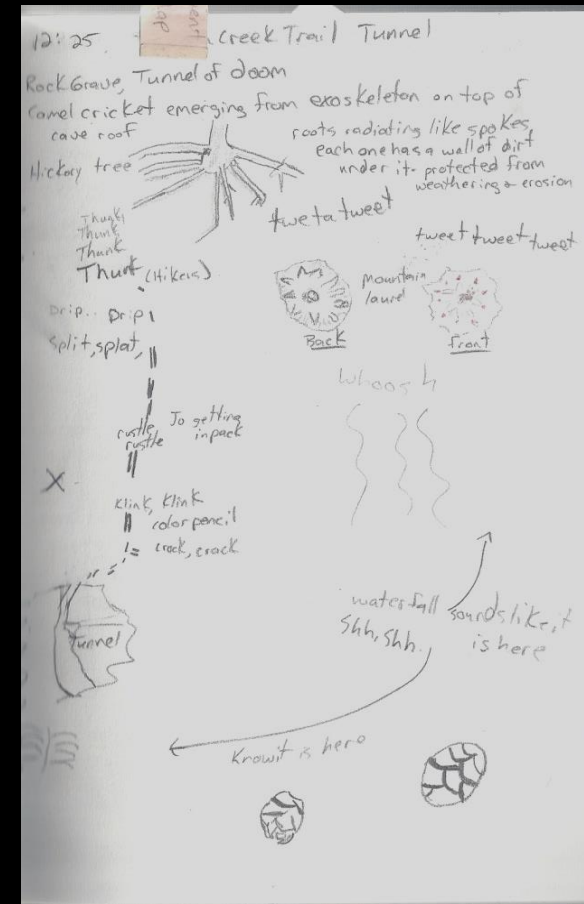 12:25 Creek Trail Tunnel
Rock Grave, Tunnel of doom
Camel cricket emerging from exoskeleton on top of
cave roof
roots radiating like spokes,
each one has a wall of dirt
under it - protected from
weathering & erosion
Hickory tree
tweta tweet
tweet tweet tweet
Thunk,
Thunk
Thunk
Thunk (Hikers)
mountain
laurel
Back
front
Drip.. Drip
Split, splat,
Whoosh
rustle,
rustle
Jo getting
in pack
X
Klink, Klink
color pencil
crack, crack
Tunnel
waterfall
shh, shh.
sounds like it
is here
Know it is here